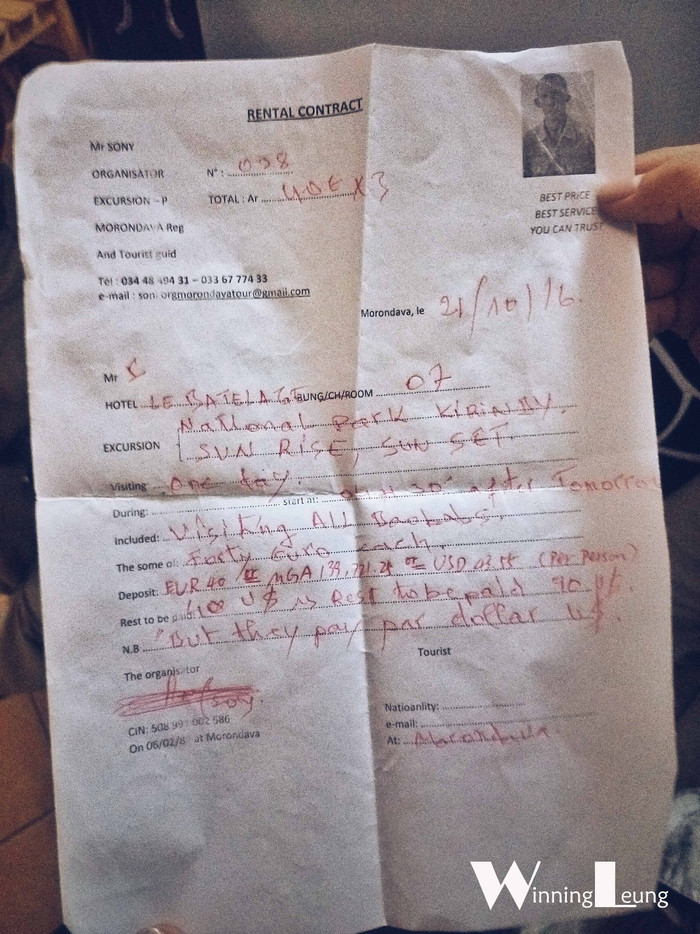 RENTAL CONTRACT
Mr SONY
ORGANISATOR N° : 038
EXCURSION – P TOTAL : Ar 40E X3
MORONDAVA Reg
And Tourist guid
BEST PRICE
BEST SERVICE
YOU CAN TRUST
Tel : 034 48 494 31 – 033 67 774 33
e-mail : orgmorondavatour@gmail.com
Morondava, le 21/10/16.
Mr
HOTEL LE BATELAGE BUNG/CH/ROOM 07
National Park KIRINDY.
EXCURSION SUN RISE, SUN SET
Visiting one day.
During: start at: after Tomorrow
Included: Visiting ALL Baobabs
The some of: Forty Euro each
Deposit: EUR 40 MGA USD (Per Person)
Rest to be paid: U$ Rest to be paid 90
N.B "But they pay par dollar U$.
The organisator
Tourist
Natioanlity:
e-mail:
CIN: 508 99 002 586
On 06/02/8 at Morondava
At: Morondava
Winning Leung